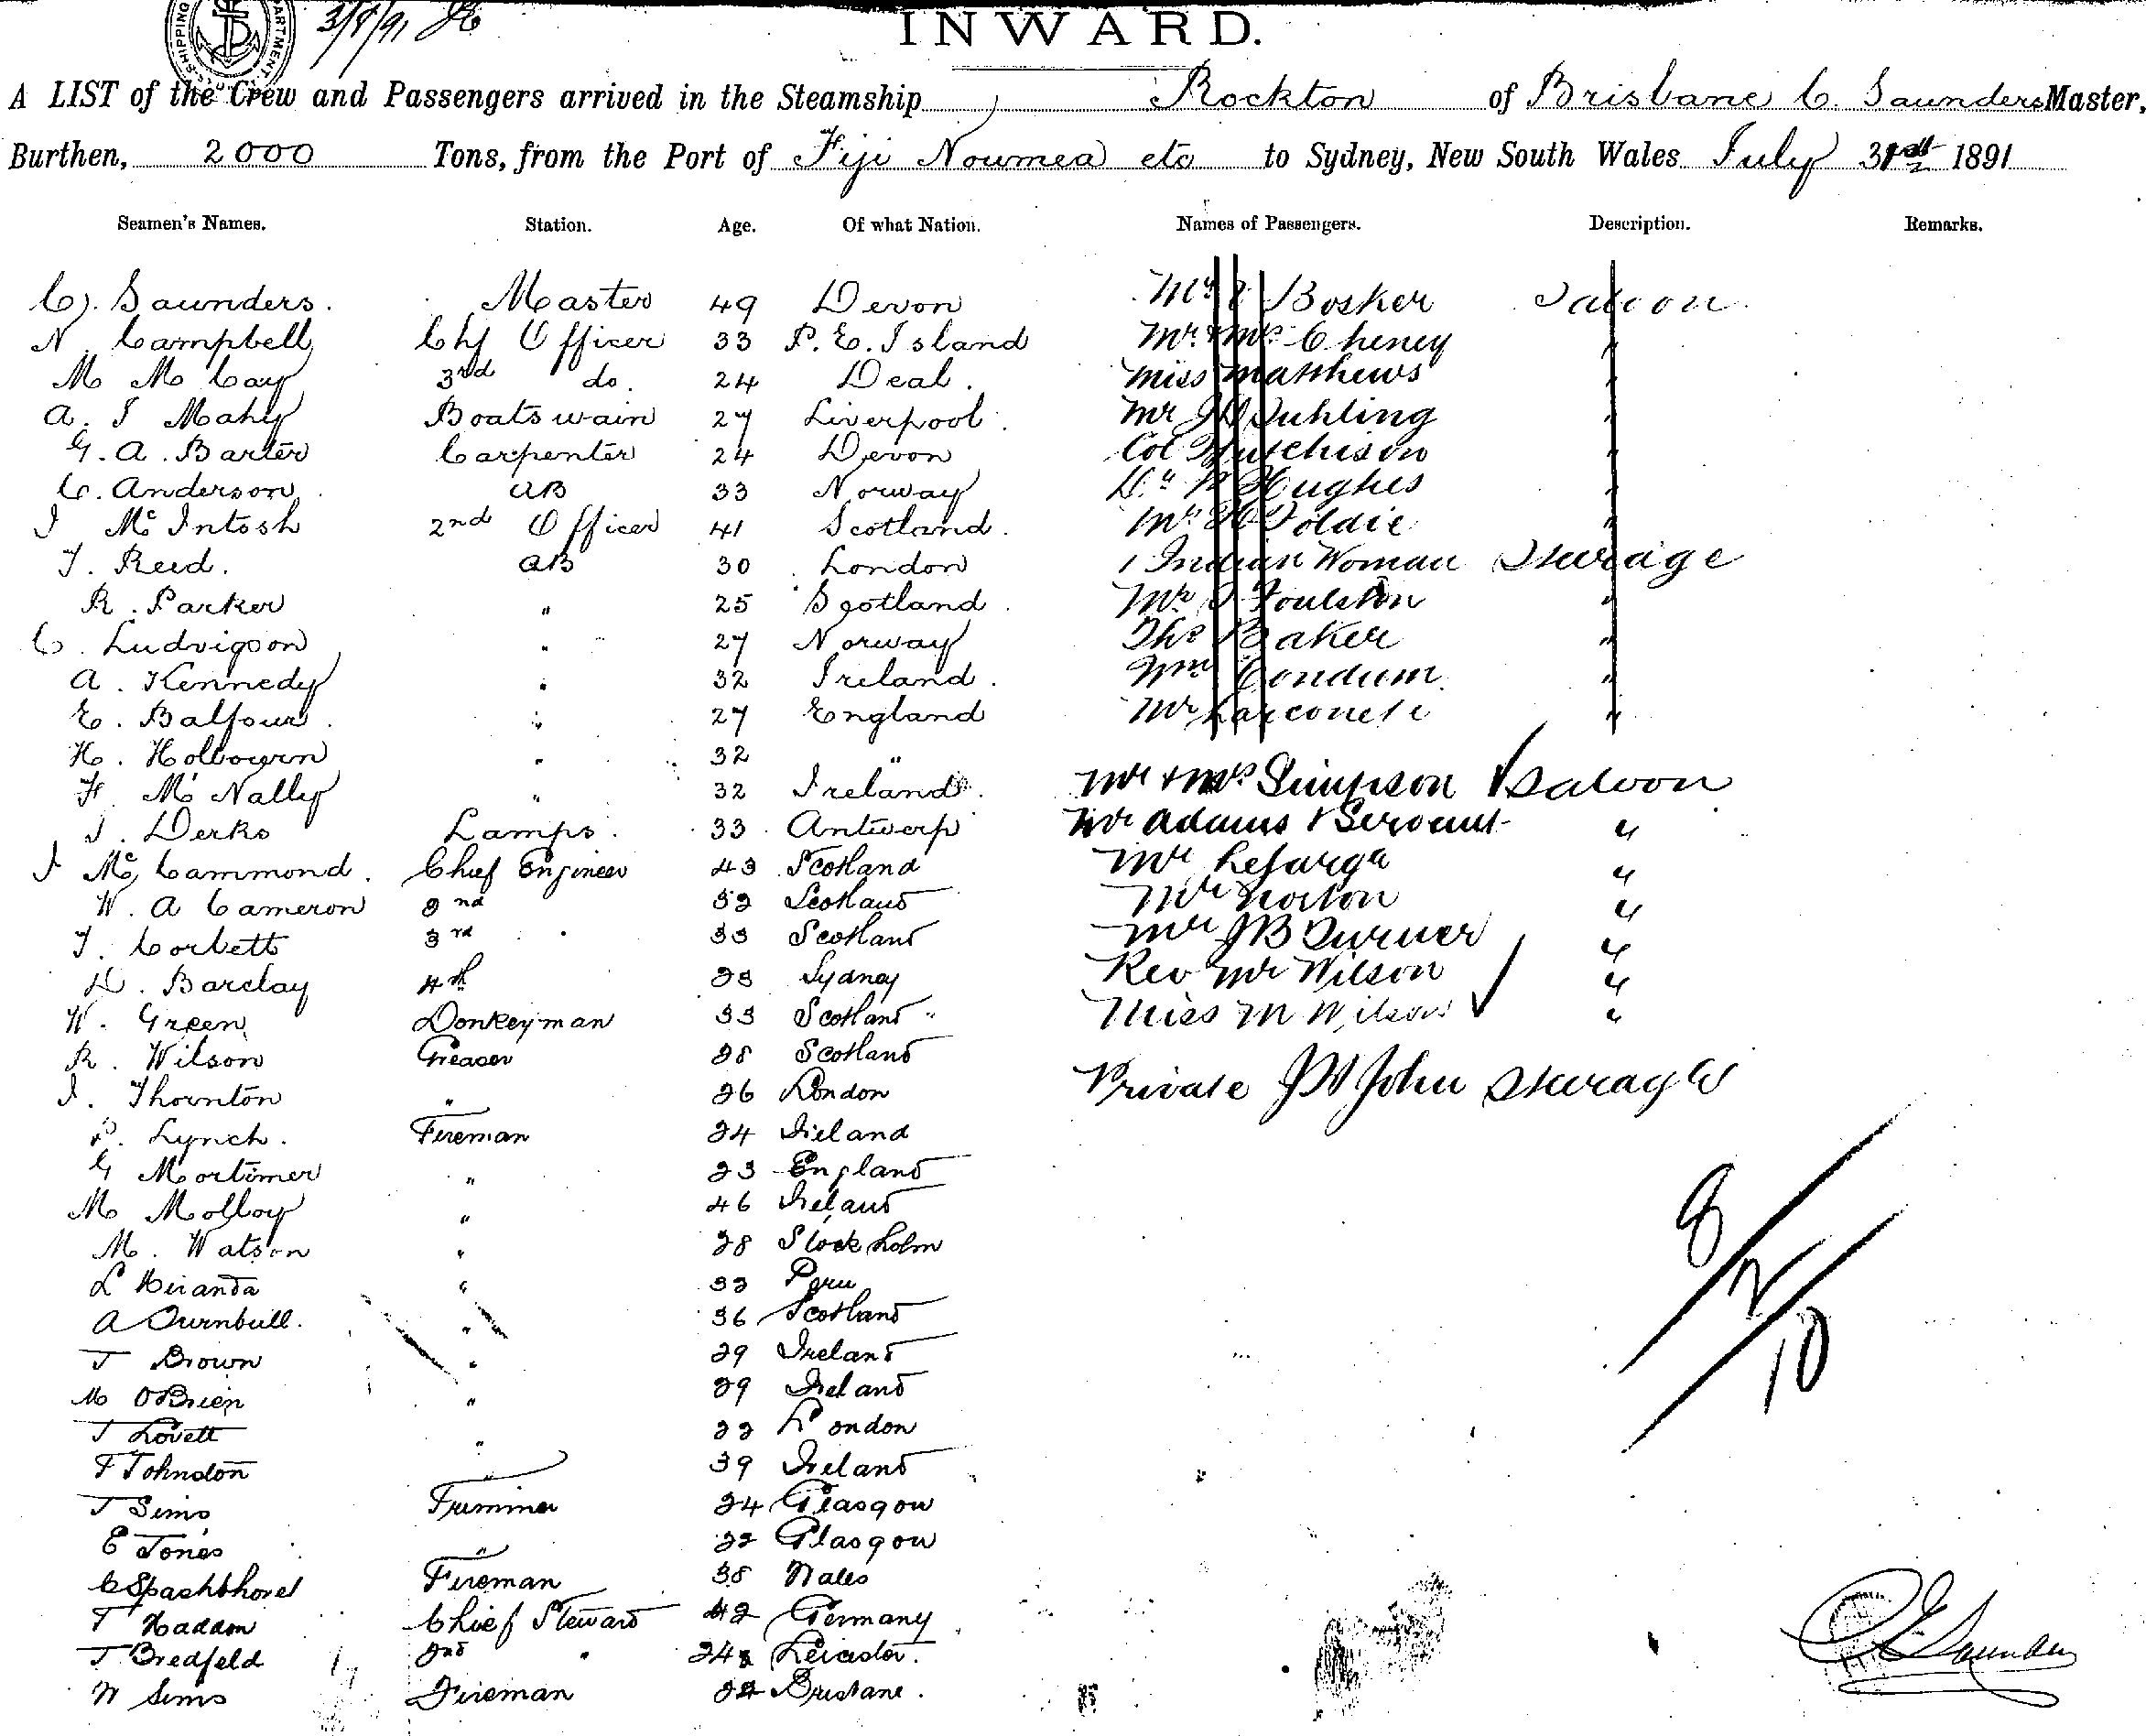 SHIPPING DEPARTMENT
3/8/91
INWARD.
A LIST of the Crew and Passengers arrived in the Steamship Rockton of Brisbane C. Saunders Master,
Burthen, 2000 Tons, from the Port of Fiji Noumea etc to Sydney, New South Wales July 31st 1891
Seamen's Names. Station. Age. Of what Nation. Names of Passengers. Description. Remarks.
C. Saunders. Master 49 Devon Mr Bosker Saloon
N. Campbell Chf Officer 33 P. E. Island Mr & Mrs Cheney "
M McCay 3rd do. 24 Deal. Miss Matthews "
A. J Mahy Boatswain 27 Liverpool. Mr J Duhling "
G. A. Barter Carpenter 24 Devon Col Hutchison "
C. Anderson AB 33 Norway Dr Hughes "
J McIntosh 2nd Officer 41 Scotland. Mr Goldie "
T. Reed. AB 30 London 1 Indian Woman Steerage
R. Parker " 25 Scotland Mr J Foulston "
C. Ludvigson " 27 Norway Thos Baker "
A. Kennedy " 32 Ireland. Wm Condum "
E. Balfour. " 27 England Mr "
H. Holbourn " 32 " Mr & Mrs Simpson Saloon
F. McNally " 32 Ireland. Mr Adams & Servant "
J. Derks Lamps. 33 Antwerp Mr Lefarga "
J McCammond. Chief Engineer 43 Scotland Mr Norton "
W. A Cameron 2nd 32 Scotland Mr JB Turner "
T. Corbett 3rd " 33 Scotland Rev Mr Wilson "
D. Barclay 4th 23 Sydney Miss M Wilson "
W. Green Donkeyman 33 Scotland
R. Wilson Greaser 28 Scotland Private JW John Steerage
J. Thornton " 26 London
P. Lynch. Fireman 24 Ireland
G Mortimer " 23 England
M Molloy " 46 Ireland
M. Watson " 28 Stockholm
L Miranda " 32 Peru
A Turnbull. " 36 Scotland
J Brown " 29 Ireland
M OBrien " 29 Ireland
J Lovett " 22 London
F Johnston " 39 Ireland
J Sims Trimmer 24 Glasgow
E Jones " 22 Glasgow
C Fireman 38 Wales
T Haddon Chief Steward 42 Germany
J Bredfeld 2nd " 24 Leicester.
W Sims Fireman 22 Brisbane.
8/2/10
C Saunders